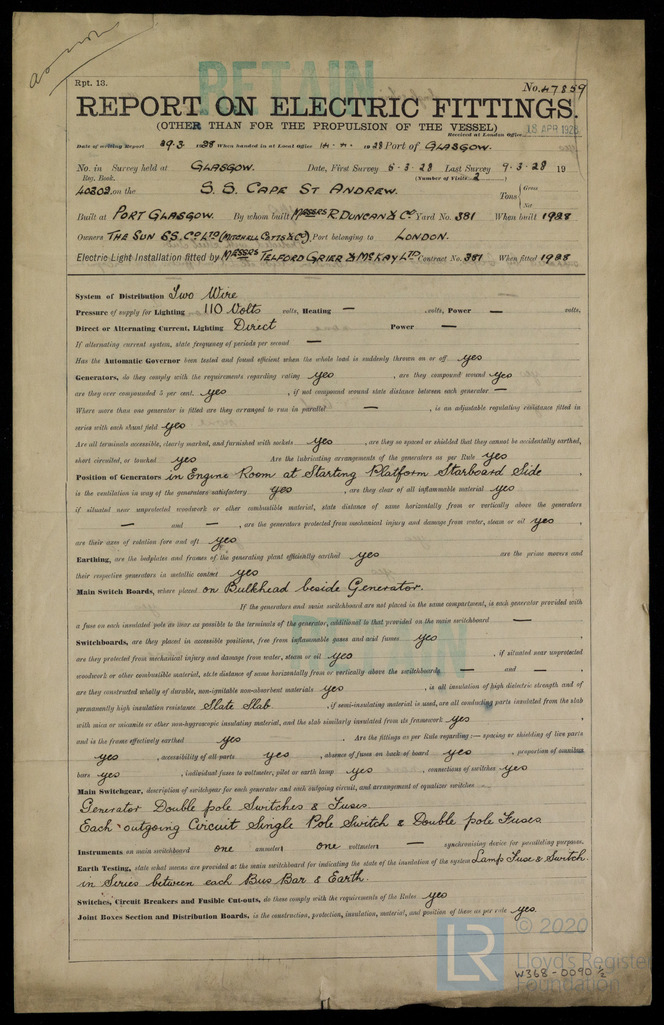 Rpt. 13.
RETAIN
No. 47859
REPORT ON ELECTRIC FITTINGS.
(OTHER THAN FOR THE PROPULSION OF THE VESSEL)
Received at London Office 18 APR 1928
Date of writing Report 29.3 1928 When handed in at Local Office 1928 Port of GLASGOW.
No. in Survey held at GLASGOW. Date, First Survey 6-3-28 Last Survey 9-3-28 19
Reg. Book. (Number of Visits 2 )
40302 on the S.S. CAPE ST ANDREW. Tons { Gross Net
Built at PORT GLASGOW. By whom built MESSRS R. DUNCAN & CO Yard No. 381 When built 1928
Owners THE SUN S.S. CO LTD (MITCHELL COTTS & CO) Port belonging to LONDON.
Electric Light Installation fitted by MESSRS TELFORD GRIER & MCKAY LTD. Contract No. 381 When fitted 1928
System of Distribution Two Wire
Pressure of supply for Lighting 110 Volts volts, Heating — , volts, Power — volts,
Direct or Alternating Current, Lighting Direct Power —
If alternating current system, state frequency of periods per second —
Has the Automatic Governor been tested and found efficient when the whole load is suddenly thrown on or off yes
Generators, do they comply with the requirements regarding rating yes , are they compound wound yes
are they over compounded 5 per cent. yes , if not compound wound state distance between each generator —
Where more than one generator is fitted are they arranged to run in parallel — , is an adjustable regulating resistance fitted in
series with each shunt field yes
Are all terminals accessible, clearly marked, and furnished with sockets yes , are they so spaced or shielded that they cannot be accidentally earthed,
short circuited, or touched yes Are the lubricating arrangements of the generators as per Rule yes
Position of Generators in Engine Room at Starting Platform Starboard Side
is the ventilation in way of the generators satisfactory yes , are they clear of all inflammable material yes
if situated near unprotected woodwork or other combustible material, state distance of same horizontally from or vertically above the generators
— and — , are the generators protected from mechanical injury and damage from water, steam or oil yes ,
are their axes of rotation fore and aft yes
Earthing, are the bedplates and frames of the generating plant efficiently earthed yes are the prime movers and
their respective generators in metallic contact yes
Main Switch Boards, where placed on Bulkhead beside Generator.
If the generators and main switchboard are not placed in the same compartment, is each generator provided with
a fuse on each insulated pole as near as possible to the terminals of the generator, additional to that provided on the main switchboard —
Switchboards, are they placed in accessible positions, free from inflammable gases and acid fumes yes ,
are they protected from mechanical injury and damage from water, steam or oil yes , if situated near unprotected
woodwork or other combustible material, state distance of same horizontally from or vertically above the switchboards — and — ,
are they constructed wholly of durable, non-ignitable non-absorbent materials yes , is all insulation of high dielectric strength and of
permanently high insulation resistance Slate Slab. , if semi-insulating material is used, are all conducting parts insulated from the slab
with mica or micanite or other non-hygroscopic insulating material, and the slab similarly insulated from its framework yes ,
and is the frame effectively earthed yes . Are the fittings as per Rule regarding:— spacing or shielding of live parts
yes , accessibility of all parts yes , absence of fuses on back of board yes , proportion of omnibus
bars yes , individual fuses to voltmeter, pilot or earth lamp yes , connections of switches yes
Main Switchgear, description of switchgear for each generator and each outgoing circuit, and arrangement of equalizer switches
Generator Double pole Switches & Fuses.
Each outgoing Circuit Single Pole Switch & Double pole Fuses.
Instruments on main switchboard one ammeter one voltmeter — synchronising device for paralleling purposes.
Earth Testing, state what means are provided at the main switchboard for indicating the state of the insulation of the system Lamp Fuse & Switch.
in Series between each Bus Bar & Earth.
Switches, Circuit Breakers and Fusible Cut-outs, do these comply with the requirements of the Rules yes
Joint Boxes Section and Distribution Boards, is the construction, protection, insulation, material, and position of these as per rule yes.
© 2020
LR
Lloyd's Register
Foundation
W368-0090 ½